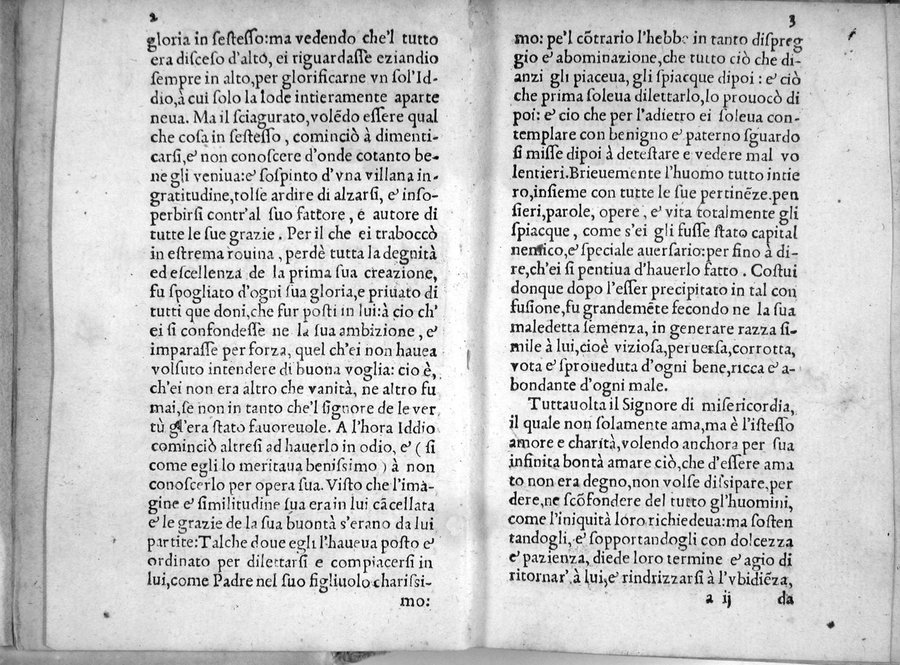 2
gloria in ſesteſſo:ma vedendo che'l tutto
era diſceſo d'alto, ei riguardaſſe eziandio
ſempre in alto,per glorificarne vn ſol'Id-
dio,à cui ſolo la lode intieramente aparte
neua. Ma il ſciagurato,volẽdo eſſere qual
che coſa in ſesteſſo, cominciò à dimenti-
carſi,e' non conoſcere d'onde cotanto be-
ne gli veniua:e' ſoſpinto d'vna villana in-
gratitudine,tolſe ardire di alzarſi, e' inſo-
perbirſi contr'al ſuo fattore, e autore di
tutte le ſue grazie. Per il che ei traboccò
in estrema rouina, perdè tutta la degnità
ed eſcellenza de la prima ſua creazione,
fu ſpogliato d'ogni ſua gloria,e priuato di
tutti que doni,che fur posti in lui:à cio ch'
ei ſi confondeſſe ne la ſua ambizione, e'
imparaſſe per forza, quel ch'ei non hauea
volſuto intendere di buona voglia: cio è,
ch'ei non era altro che vanità, ne altro fu
mai,ſe non in tanto che'l ſignore de le ver
tù gl'era stato fauoreuole. A l'hora Iddio
cominciò altreſi ad hauerlo in odio, e' ( ſi
come egli lo meritaua beniſſimo ) à non
conoſcerlo per opera ſua. Visto che l'imà-
gine e' ſimilitudine ſua era in lui cãcellata
e' le grazie de la ſua buontà s'erano da lui
partite:Talche doue egli l'haueua posto e'
ordinato per dilettarſi e compiacerſi in
lui,come Padre nel ſuo figliuolo chariſſi-
mo:
3
mo: pe'l cõtrario l'hebbe in tanto diſpreg
gio e' abominazione,che tutto ciò che di-
anzi gli piaceua, gli ſpiacque dipoi : e' ciò
che prima ſoleua dilettarlo,lo prouocò di
poi: e' cio che per l'adietro ei ſoleua con-
templare con benigno e' paterno sguardo
ſi miſſe dipoi à detestare e vedere mal vo
lentieri.Brieuemente l'huomo tutto intie
ro,inſieme con tutte le ſue pertinẽze,pen
ſieri,parole, opere, e' vita totalmente gli
ſpiacque, come s'ei gli fuſſe stato capital
nemico,e' ſpeciale auerſario:per fino à di-
re,ch'ei ſi pentiua d'hauerlo fatto. Costui
donque dopo l'eſſer precipitato in tal con
fuſione,fu grandemẽte fecondo ne la ſua
maledetta ſemenza, in generare razza ſi-
mile à lui,cioè vizioſa,peruerſa,corrotta,
vota e' ſproueduta d'ogni bene,ricca e' a-
bondante d'ogni male.
Tuttauolta il Signore di miſericordia,
il quale non ſolamente ama,ma è l'isteſſo
amore e charità,volendo anchora per ſua
infinita bontà amare ciò,che d'eſſere ama
to non era degno,non volſe diſſipare,per
dere,ne ſcõfondere del tutto gl'huomini,
come l'iniquità loro richiedeua:ma ſosten
tandogli, e' ſopportandogli con dolcezza
e' pazienza, diede loro termine e' agio di
ritornar' à lui,e' rindrizzarſi à l'vbidiẽza,
a ij da